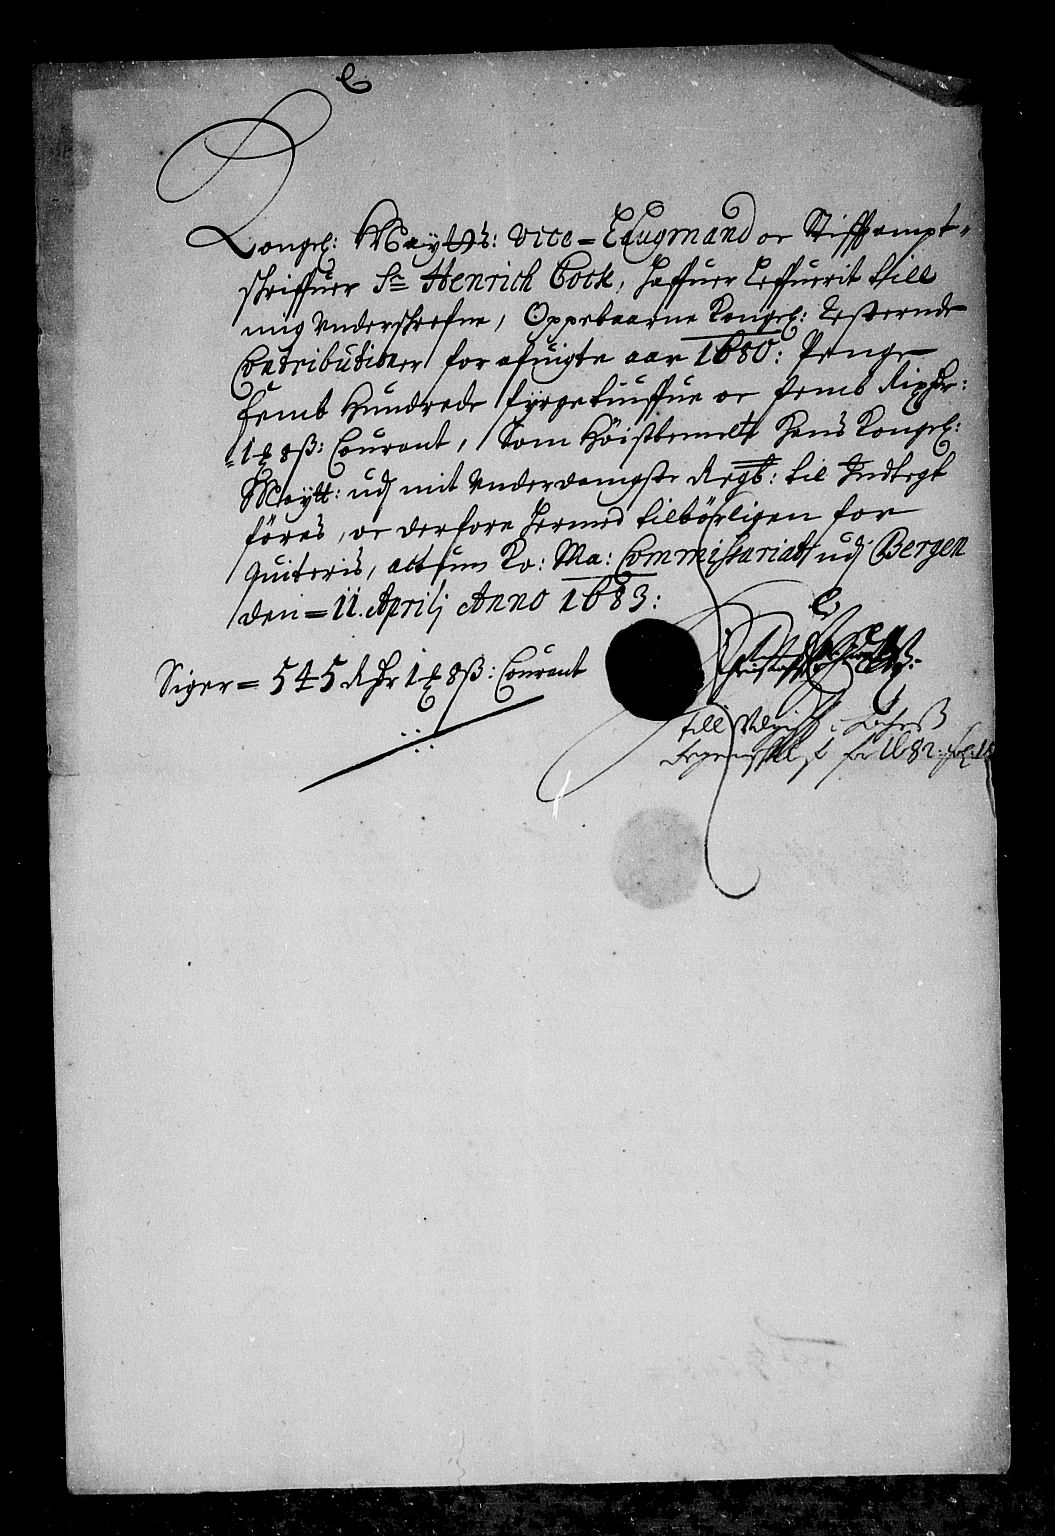 Kongel: Maytts: Vice=Laugmand oc Stifftampt=
skriffuer Sr Henrich Cock, haffuer Leffuerit till
mig Underskrefne, Oppebaarne Kongel: Resterende
Contributioner for afuigte aar 1680: Penge
femb Hundrede fyrgetiuffue oc femb Rixdr:
=1 ₰ 8 ß: Courant, Som Høistbemelte Hans Kongel:
Maytt: udj mit Underdanigste Regb: til Indtegt
føres, oc derfore hermed tilbørligen for
quiteris, actum Ko: Ma: Commissariat udj Bergen
den = 11. Aprilj Anno 1683:
Siger = 545 Rdr 1 ₰ 8 ß: Courant
till
for 1682: fol: 18